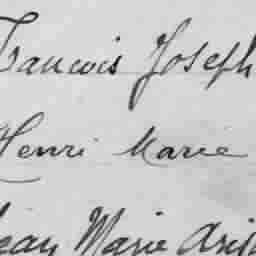 Francois Joseph
Henri Marie
Jean Marie